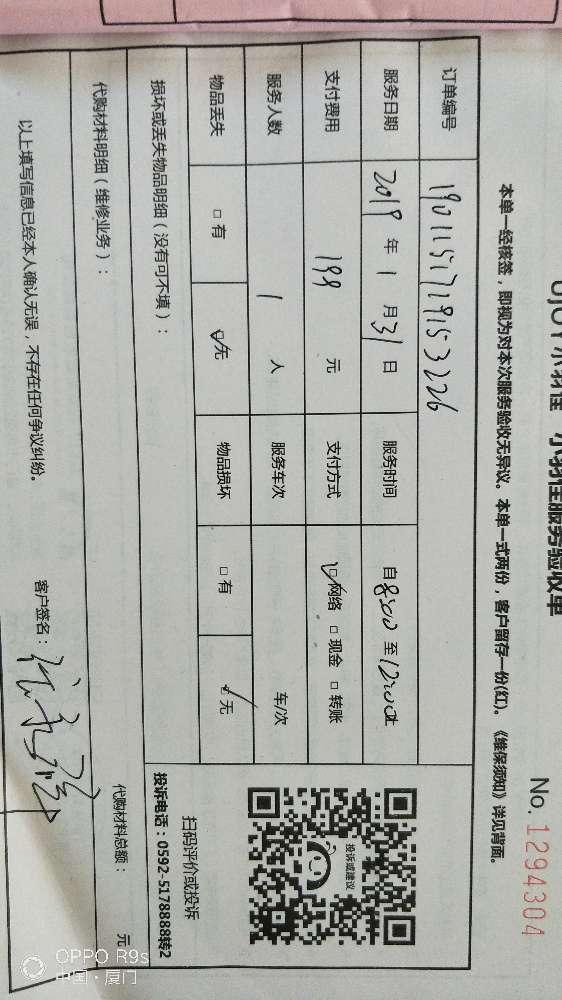 小羽佳服务验收单
No. 1294304
本单一经核签，即视为对本次服务验收无异议。本单一式两份，客户留存一份(红)。《维保须知》详见背面。
订单编号 1901151719153226
服务日期 2019 年 1 月 31 日 服务时间 自 8:00 至 12:00 止
支付费用 199 元 支付方式 ☑网络 □现金 □转账
服务人数 1 人 服务车次 车/次
物品丢失 □有 ☑无 物品损坏 □有 ☑无
损坏或丢失物品明细（没有可不填）：
投诉或建议
扫码评价或投诉
投诉电话：0592-5178888转2
代购材料明细（维修业务）：
代购材料总额： 元
以上填写信息已经本人确认无误，不存在任何争议纠纷。 客户签名：
OPPO R9s
中国·厦门